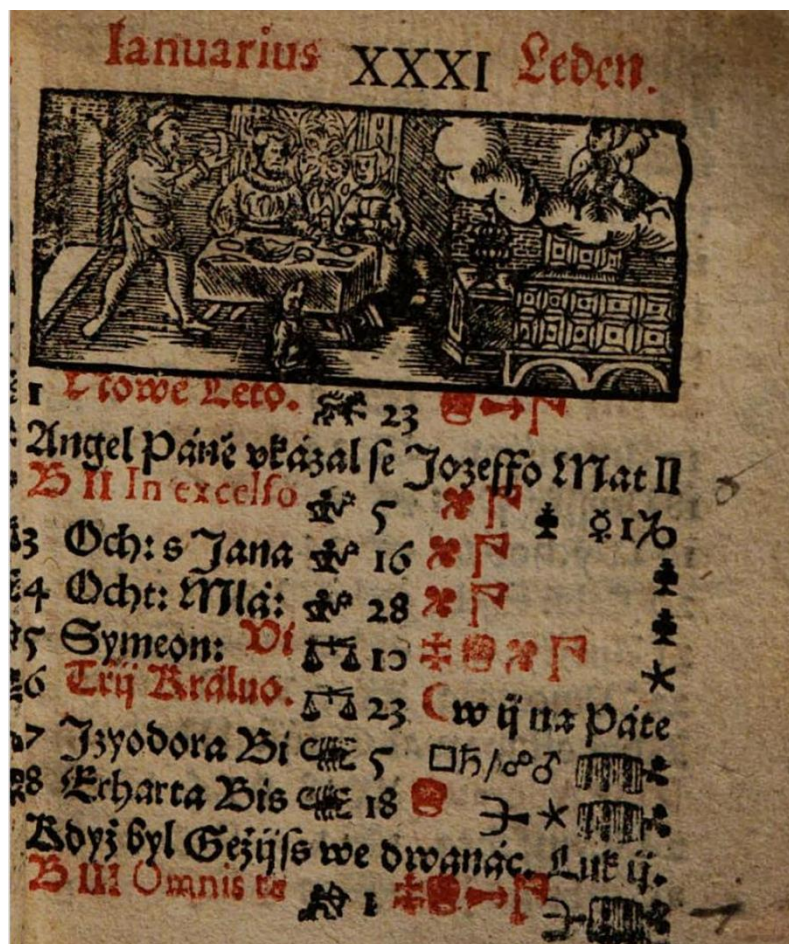 Ianuarius XXXI Leden.
1 Nowe Leto. 23
Angel Páně vkázal se Jozeffo Mat II
B II In excelso 5 ☿ 1 ♑
3 Och: s Jana 16
4 Ocht: Mlá: 28
5 Symeon: Vi 10
6 Třij Králuo. 23 C w ij na Páte
7 Izyodora Bi 5 □♄/☍♂
8 Erharta Bis 18
Když byl Gežijss we dwanác. Luk ij.
B III Omnis te 1